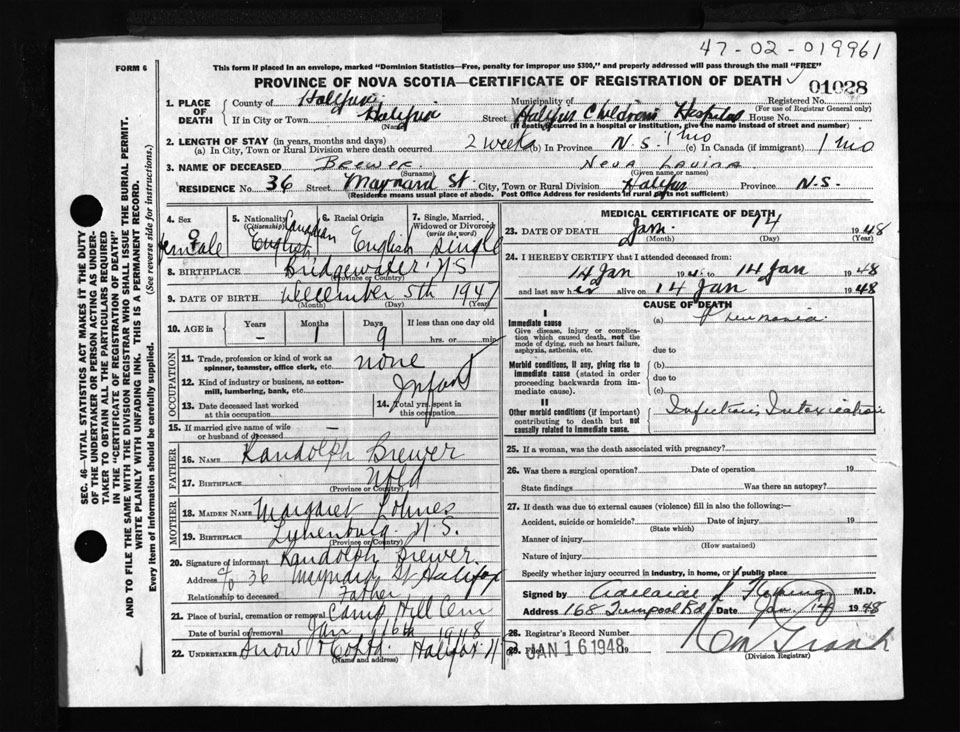 47-02-019961
FORM 6
This form if placed in an envelope, marked "Dominion Statistics—Free, penalty for improper use $300," and properly addressed will pass through the mail "FREE"
PROVINCE OF NOVA SCOTIA—CERTIFICATE OF REGISTRATION OF DEATH
01028
1. PLACE OF DEATH
County of Halifax Municipality of Registered No.
(For use of Registrar General only)
If in City or Town Halifax Street Halifax Childrens Hospital House No.
(Name) (If death occurred in a hospital or institution, give the name instead of street and number)
2. LENGTH OF STAY (in years, months and days)
(a) In City, Town or Rural Division where death occurred 2 weeks (b) In Province N.S. 1 mo (c) In Canada (if immigrant) 1 mo
3. NAME OF DECEASED Brewer Neva Lavina
(Surname) (Given name or names)
RESIDENCE No. 36 Street Maynard St. City, Town or Rural Division Halifax Province N.S.
(Residence means usual place of abode. Post Office Address for residents in rural parts not sufficient)
4. Sex Female
5. Nationality (Citizenship) Canadian English
6. Racial Origin English
7. Single, Married, Widowed or Divorced (write the word) Single
8. BIRTHPLACE Bridgewater N S
(Province or Country)
9. DATE OF BIRTH December 5th 1947
(Month) (Day) (Year)
10. AGE in Years Months Days If less than one day old
- 1 9 hrs. or min.
OCCUPATION
11. Trade, profession or kind of work as spinner, teamster, office clerk, etc. none
12. Kind of industry or business, as cotton-mill, lumbering, bank, etc. Infant
13. Date deceased last worked at this occupation
14. Total yrs. spent in this occupation
15. If married give name of wife or husband of deceased —
FATHER
16. NAME Randolph Brewer
17. BIRTHPLACE Nfld
(Province or Country)
MOTHER
18. MAIDEN NAME Margaret Lohnes
19. BIRTHPLACE Lunenburg N.S.
(Province or Country)
20. Signature of informant Randolph Brewer
Address c/o 36 Maynard St Halifax
Relationship to deceased Father
21. Place of burial, cremation or removal Camp Hill Cem
Date of burial or removal Jan 16th 1948
22. UNDERTAKER Snow & Co Ltd. Halifax N S
(Name and address)
MEDICAL CERTIFICATE OF DEATH
23. DATE OF DEATH Jan. 14 1948
(Month) (Day) (Year)
24. I HEREBY CERTIFY that I attended deceased from:
14 Jan 194 to 14 Jan 1948
and last saw her alive on 14 Jan 1948
CAUSE OF DEATH
I
Immediate cause (a) Pneumonia.
Give disease, injury or complication which caused death, not the mode of dying, such as heart failure, asphyxia, asthenia, etc.
due to
Morbid conditions, if any, giving rise to immediate cause (stated in order proceeding backwards from immediate cause).
(b)
due to
(c)
II
Other morbid conditions (if important) contributing to death but not causally related to immediate cause.
Infection, Intoxication
25. If a woman, was the death associated with pregnancy?
26. Was there a surgical operation? Date of operation 19
State findings Was there an autopsy?
27. If death was due to external causes (violence) fill in also the following:—
Accident, suicide or homicide? Date of injury 19
(State which)
Manner of injury
(How sustained)
Nature of injury
Specify whether injury occurred in industry, in home, or in public place
Signed by Adelaide Fleming M.D.
Address 168 Date Jan. 14 1948
28. Registrar's Record Number
29. Filed JAN 16 1948 19
(Division Registrar)
SEC. 46—VITAL STATISTICS ACT MAKES IT THE DUTY OF THE UNDERTAKER OR PERSON ACTING AS UNDERTAKER TO OBTAIN ALL THE PARTICULARS REQUIRED IN THE "CERTIFICATE OF REGISTRATION OF DEATH" AND TO FILE THE SAME WITH THE DIVISION REGISTRAR WHO SHALL ISSUE THE BURIAL PERMIT.
WRITE PLAINLY WITH UNFADING INK. THIS IS A PERMANENT RECORD.
Every item of information should be carefully supplied. (See reverse side for instructions.)